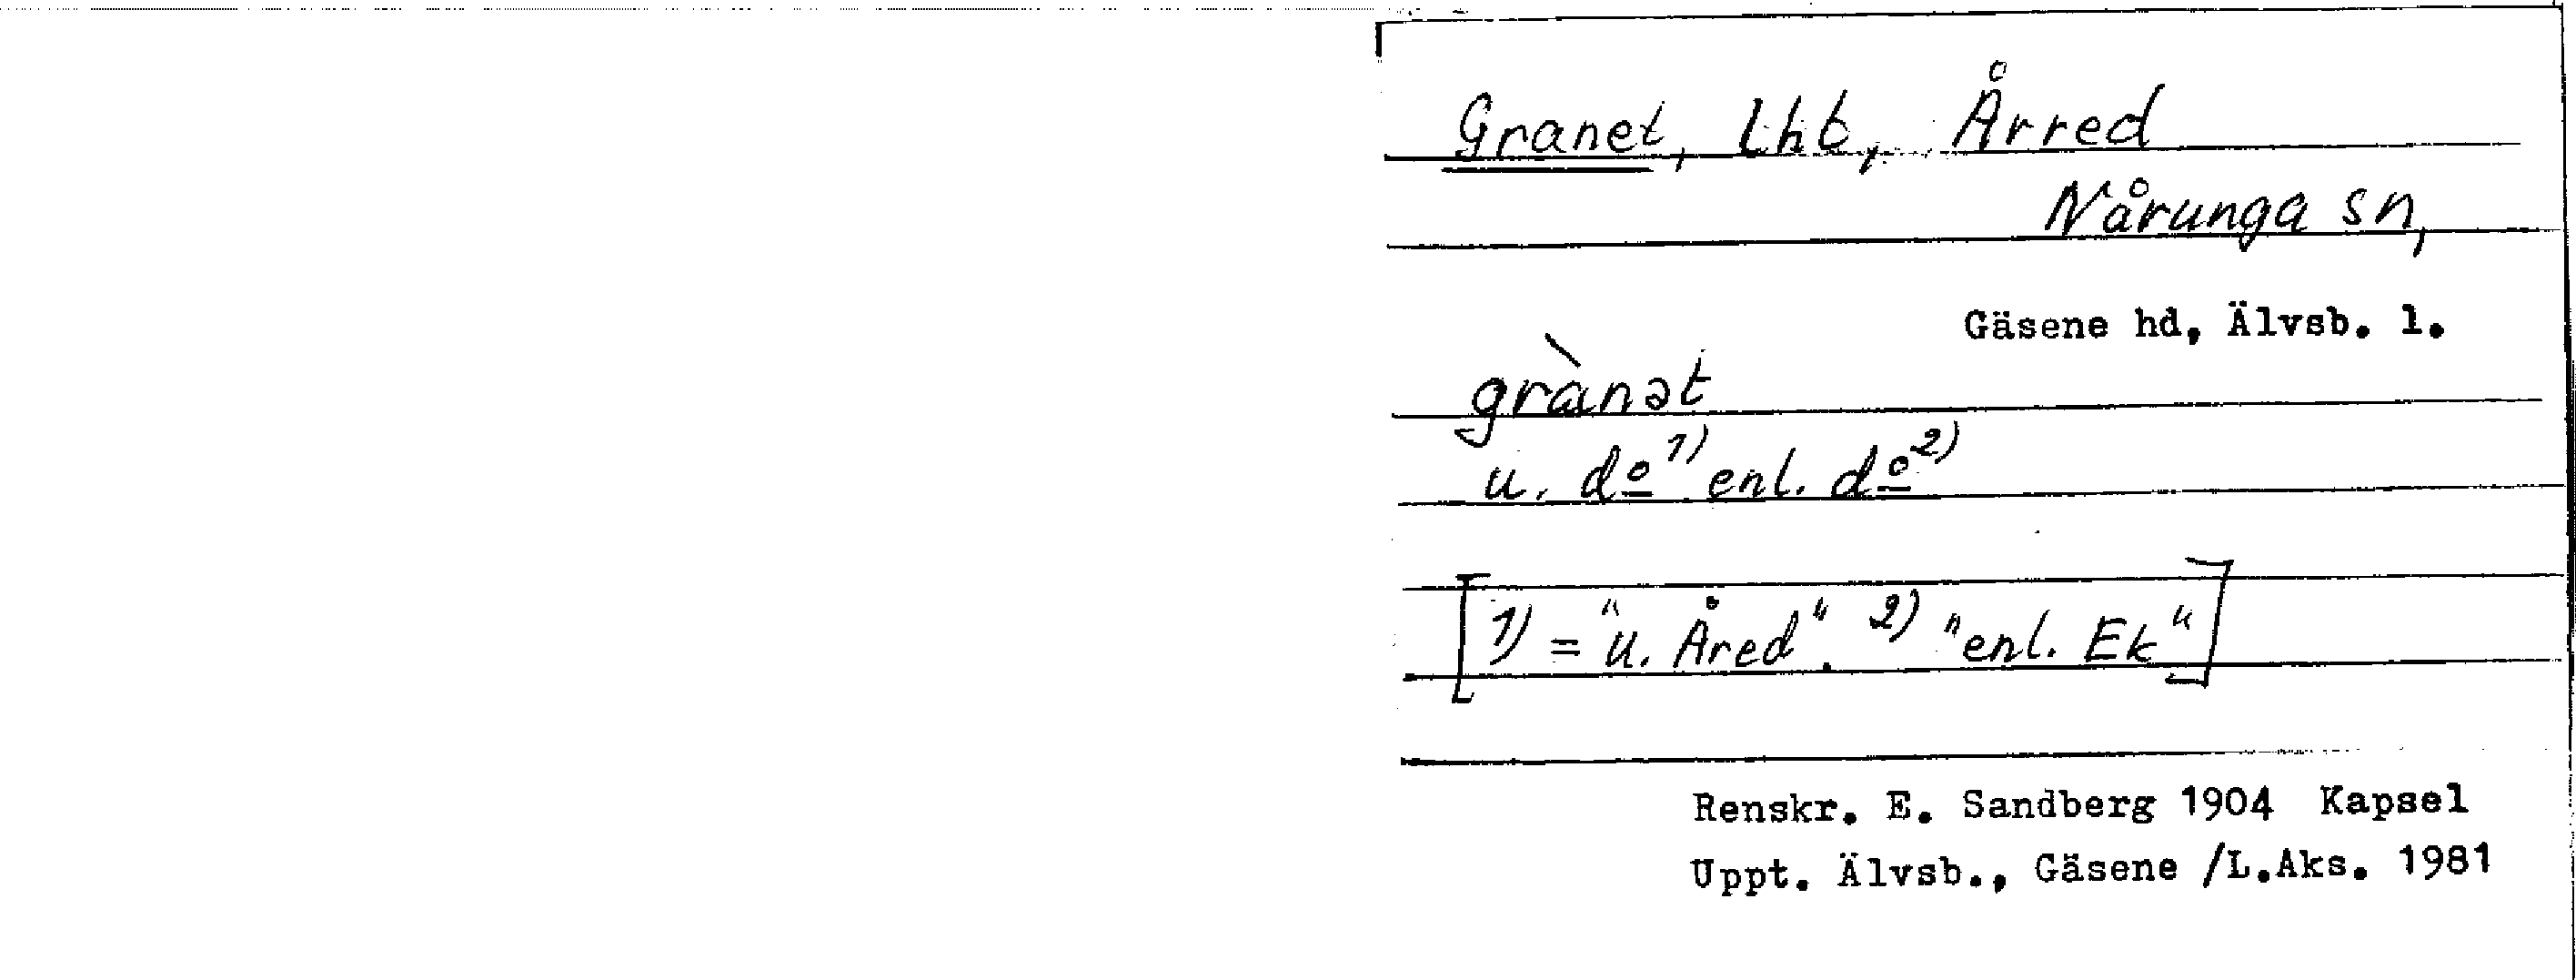 Granet, lht, Årred
Nårunga sn,
Gäsene hd, Älvsb. l.
grànət
u. do 1) enl. do 2)
[1) = "u. Åred". 2) "enl. Ek"]
Renskr. E. Sandberg 1904 Kapsel
Uppt. Älvsb., Gäsene /L.Aks. 1981